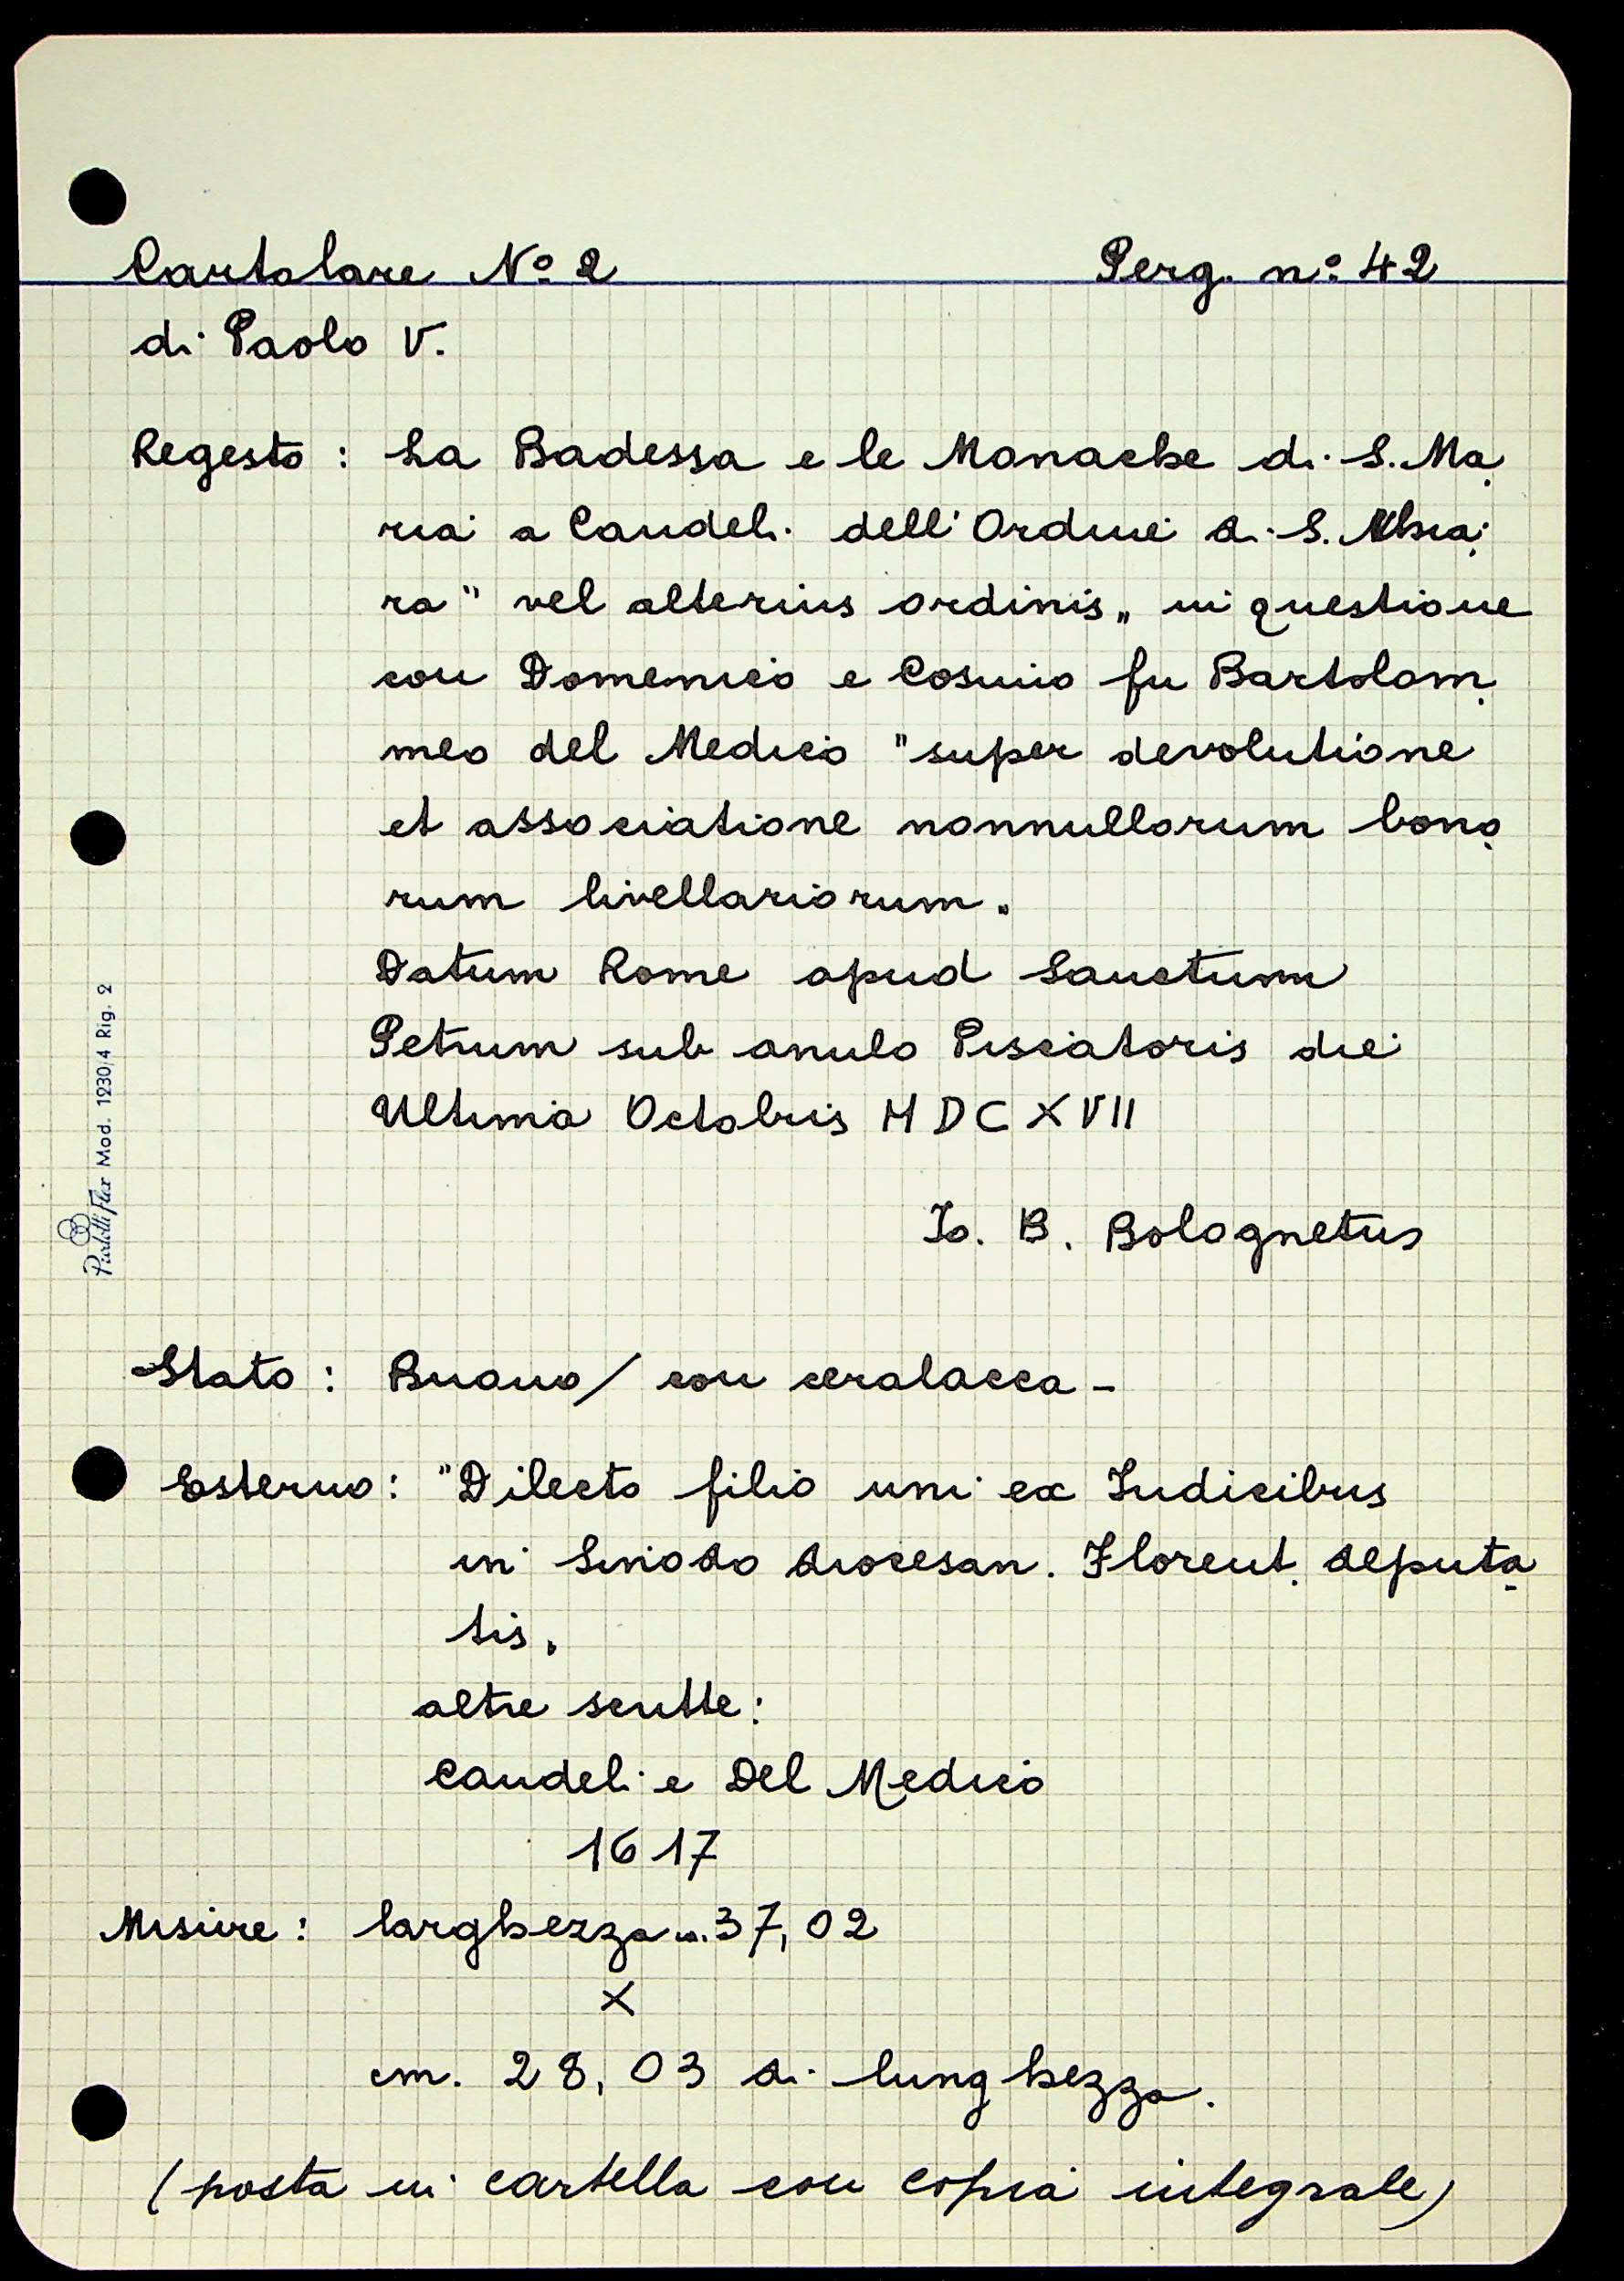 Cartolare Nº 2 Perg. nº 42
di Paolo V.
Regesto : La Badessa e le Monache di S. Ma
ria a Candeli dell'Ordine di S. Chia
ra " vel alterius ordinis „ in questione
con Domenico e Cosimo fu Bartolom
meo del Medico "super devolutione
et associatione nonnullorum bono
rum livellariorum „
Datum Rome apud Sanctum
Petrum sub anulo Piscatoris die
Ultima Octobris MDCXVII
Io. B. Bolognetus
Stato : Buono / con ceralacca -
Esterno : "Dilecto filio uni ex Iudicibus
in Sinodo diocesan. Florent. deputa
tis „
altre scritte :
Candeli e Del Medico
1617
Misure : larghezza cm. 37,02
X
cm. 28,03 di lunghezza.
(posta in cartella con copia integrale)
PartelliFlex Mod. 1230/4 Rig. 2